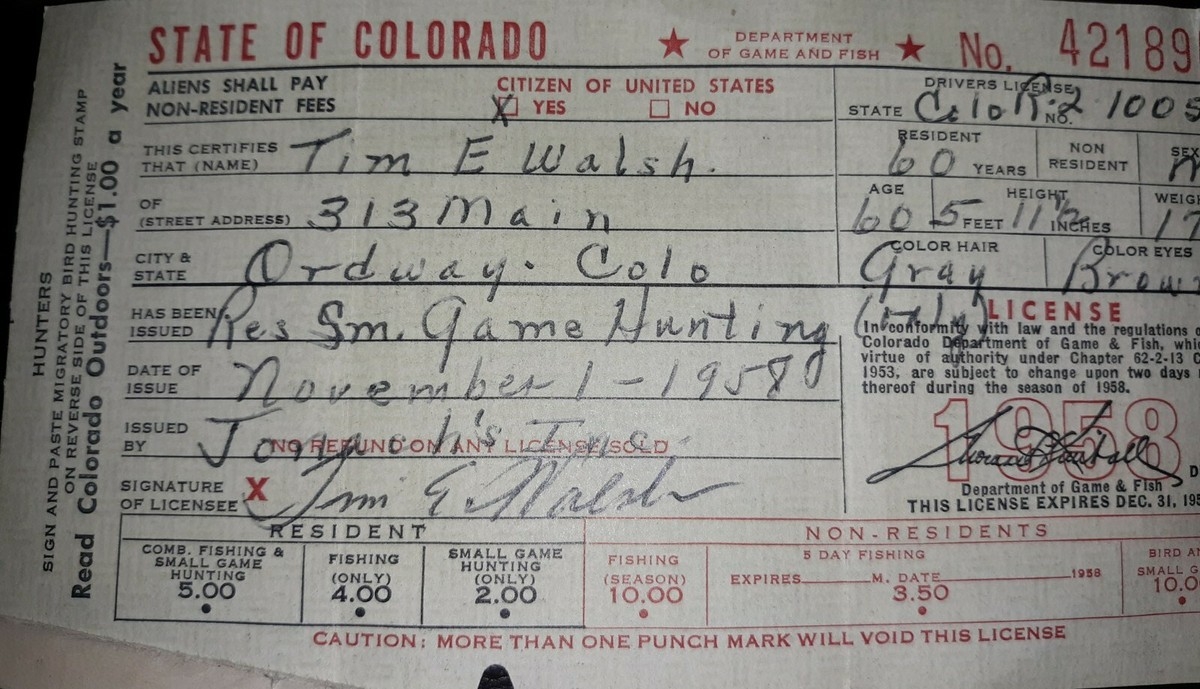 STATE OF COLORADO ★ DEPARTMENT OF GAME AND FISH ★ No. 42189
ALIENS SHALL PAY NON-RESIDENT FEES
CITIZEN OF UNITED STATES
X YES NO
DRIVERS LICENSE
STATE Colo NO. R-2 1005
THIS CERTIFIES THAT (NAME) Tim E Walsh.
RESIDENT 60 YEARS
NON RESIDENT
SEX M
OF (STREET ADDRESS) 313 Main
AGE 60
HEIGHT 5 FEET 11 1/2 INCHES
WEIGH 17
CITY & STATE Ordway. Colo
COLOR HAIR Gray
COLOR EYES Brow
HAS BEEN ISSUED Res Sm. Game Hunting (only)
DATE OF ISSUE November 1-1958
ISSUED BY Inc.
NO REFUND ON ANY LICENSE SOLD
SIGNATURE OF LICENSEE X Tim E. Walsh
LICENSE
In conformity with law and the regulations
Colorado Department of Game & Fish, whi
virtue of authority under Chapter 62-2-13 C
1953, are subject to change upon two days
thereof during the season of 1958.
1958
D
Department of Game & Fish
THIS LICENSE EXPIRES DEC. 31, 195
RESIDENT
COMB. FISHING & SMALL GAME HUNTING 5.00
FISHING (ONLY) 4.00
SMALL GAME HUNTING (ONLY) 2.00
NON-RESIDENTS
FISHING (SEASON) 10.00
5 DAY FISHING
EXPIRES M. DATE 1958
3.50
BIRD AN
SMALL G
10.0
CAUTION: MORE THAN ONE PUNCH MARK WILL VOID THIS LICENSE
HUNTERS
SIGN AND PASTE MIGRATORY BIRD HUNTING STAMP
ON REVERSE SIDE OF THIS LICENSE
Read Colorado Outdoors—$1.00 a year